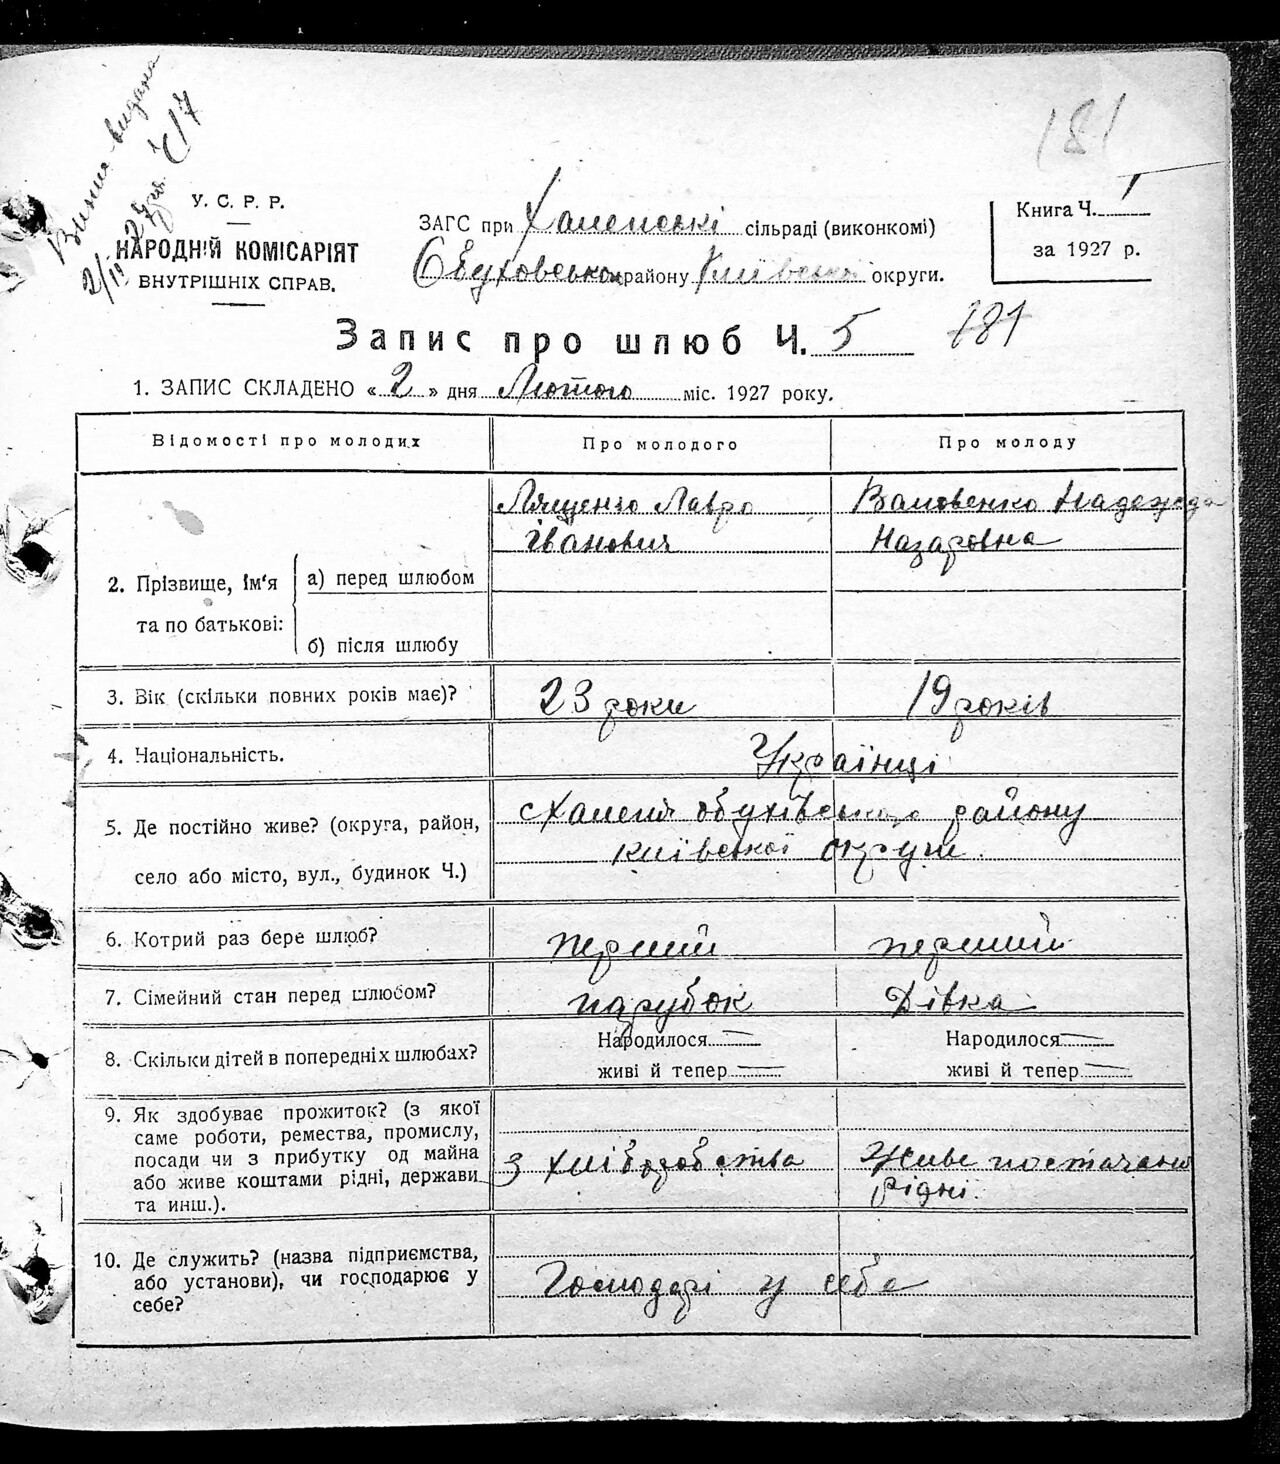 181
Випис видана
2/III 27 р. № 17
У. С. Р. Р.
НАРОДНІЙ КОМІСАРІЯТ
ВНУТРІШНІХ СПРАВ.
ЗАГС при Халепські сільраді (виконкомі)
Обуховського району Київської округи.
Книга Ч. 1
за 1927 р.
Запис про шлюб Ч. 5
181
1. ЗАПИС СКЛАДЕНО «2» дня Лютого міс. 1927 року.
Відомості про молодих Про молодого Про молоду
2. Прізвище, ім'я та по батькові:
а) перед шлюбом
Лященко Лавро
Іванович
Вамовенко Надежда
Назаровна
б) після шлюбу
3. Вік (скільки повних років має)? 23 роки 19 років
4. Національність. Українці
5. Де постійно живе? (округа, район,
село або місто, вул., будинок Ч.)
с Халепя обухівського району
київської округи.
6. Котрий раз бере шлюб? перший перший
7. Сімейний стан перед шлюбом? парубок Дівка
8. Скільки дітей в попередніх шлюбах?
Народилося — Народилося —
живі й тепер — живі й тепер —
9. Як здобуває прожиток? (з якої
саме роботи, ремества, промислу,
посади чи з прибутку од майна
або живе коштами рідні, держави
та инш.).
З хліборобства
Живе постачанн
рідні.
10. Де служить? (назва підприємства,
або установи), чи господарює у
себе?
Господарі у себе